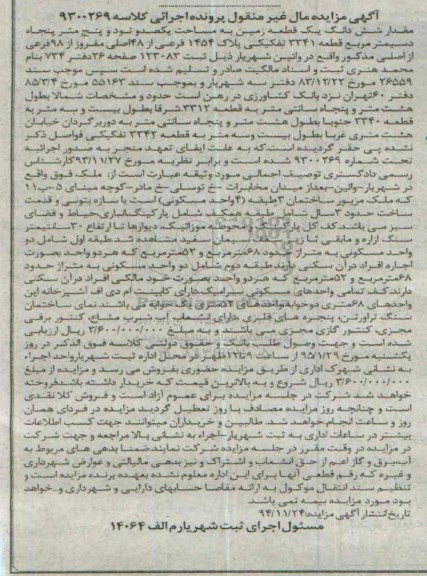 آگهی مزایده مال غیر منقول پرونده اجرائی کلاسه ۹۳۰۰۲۶۹
مقدار شش دانگ یک قطعه زمین به مساحت یکصدو نود و پنج متر پنجاه
دسیمتر مربع قطعه ۳۳۴۱ تفکیکی پلاک ۱۴۵۴ فرعی از ۴۸اصلی مفروز از ۹۸فرعی
از اصلی مذکور واقع در وائین شهریار ذیل ثبت ۱۲۳۰۸۳ صفحه ۲۶دفتر ۷۳۴ بنام
محمد هنری ثبت و اسناد مالکیت صادر و تسلیم شده است سپس بموجب سند
۲۶۵۵۹ مورخ ۸۳/۱۲/۲۲ دفتر سه شهریار و بموجب سند ۵۵۱۶۳ مورخ ۸۵/۳/۴
دفتر ۶۰تهران نزد بانک کشاورزی در رهن است حدود و مشخصات شمالا بطول
هشت متر و پنجاه سانتی متر به قطعه ۳۳۱۲ شرقا بطول بیست و سه متر به
قطعه ۳۳۴۰ جنوبا بطول هشت متر و پنجاه سانتی متر به دوربرگردان خیابان
هشت متری غربا بطول بیست وسه متر به قطعه ۳۳۴۲ تفکیکی فواصل ذکر
نشده پی حقر گردیده است.که به علت ایفای تعهد منجر به صدور اجرائیه
تحت شماره ۹۳۰۰۲۶۹ شده است و برابر نظریه مورخ ۹۳/۱۱/۲۷کارشناس
رسمی دادگستری توصیف اجمالی مورد وثیقه عبارت است از: ملک فوق واقع
در شهریار-وائین-بعداز میدان مخابرات -خ توسلی-خ مادر-کوچه مینای ۵-پ۱۱
که ملک مزبور ساختمان ۳طبقه (۴واحد مسکونی) است با سازه بتونی و قدمت
ساخت حدود ۳سال شامل طبقه همکف شامل پارکینگ،انباری،حیاط و فضای
سبز می باشد کف کل پارکینگ و محوطه موزائیک، دیوارها تا ارتفاع ۳۰سانتیمتر
سنگ ازاره و مابقی تا زیر سقف سیمان سفید مشاهده شد طبقه اول شامل دو
واحد مسکونی به متراژ حدود ۶۸مترمربع و ۵۲مترمربع که هردو واحد بصورت
اجاره افراد درآن سکنی دارند.طبقه دوم شامل دو واحد مسکونی به متراژ حدود
۶۸مترمربع و ۵۲مترمربع که هردو واحد بصورت خود مالکی افراد درآن سکنی
دارند.کف تمامی واحدهای مسکونی سرامیک،دارای کابینت ام دی اف آشپزخانه اپن
واحدهای ۶۸متری دوخوابه واحدهای ۵۲متری یک خوابه می باشند.نمای ساختمان
سنگ تراورتن، پنجره های فلزی دارای انشعاب آب شرب مشاع، کنتور برقی
مجزی، کنتور گازی مجزی می باشند و به مبلغ ۳/۶۰۰/۰۰۰/۰۰۰ ریال ارزیابی
شده است و جهت وصول طلب بانک و حقوق دولتی کلاسه فوق الذکر در روز
یکشنبه مورخ ۹۵/۱/۲۹ از ساعت ۹الی۱۲ظهر در محل اداره ثبت شهریارواحد اجراء
به نشانی شهرک اداری از طریق مزایده حضوری بفروش می رسد و مزایده از مبلغ
۳/۶۰۰/۰۰۰/۰۰۰ ریال شروع و به بالاترین قیمت که خریدار داشته باشدفروخته
خواهد شد شرکت در جلسه مزایده برای عموم آزاد است و فروش کلا نقدی
است و چنانچه روز مزایده مصادف با روز تعطیل گردید مزایده در فردای همان
روز و ساعت انجام خواهد شد. طالبین و خریداران میتوانند جهت کسب اطلاعات
بیشتر در ساعات اداری به ثبت شهریار-اجراء به نشانی بالا مراجعه و جهت شرکت
در مزایده در وقت مقرر در جلسه مزایده شرکت نمایند.ضمنا بدهی های مربوط به
آب،برق و گاز اعم از حق انشعاب و اشتراک و نیز بدهی مالیاتی و عوارض شهرداری
و غیره که رقم قطعی آنها برای این اداره معلوم نشده بعهده برنده مزایده است و
تنظیم سند انتقال موکول به ارائه مفاصا حسابهای دارایی و شهرداری و..خواهد
بود مورد مزایده بیمه نمی باشد.
تاریخ انتشار آگهی مزایده:۹۴/۱۱/۲۴
مسئول اجرای ثبت شهریار م الف ۱۴۰۶۴